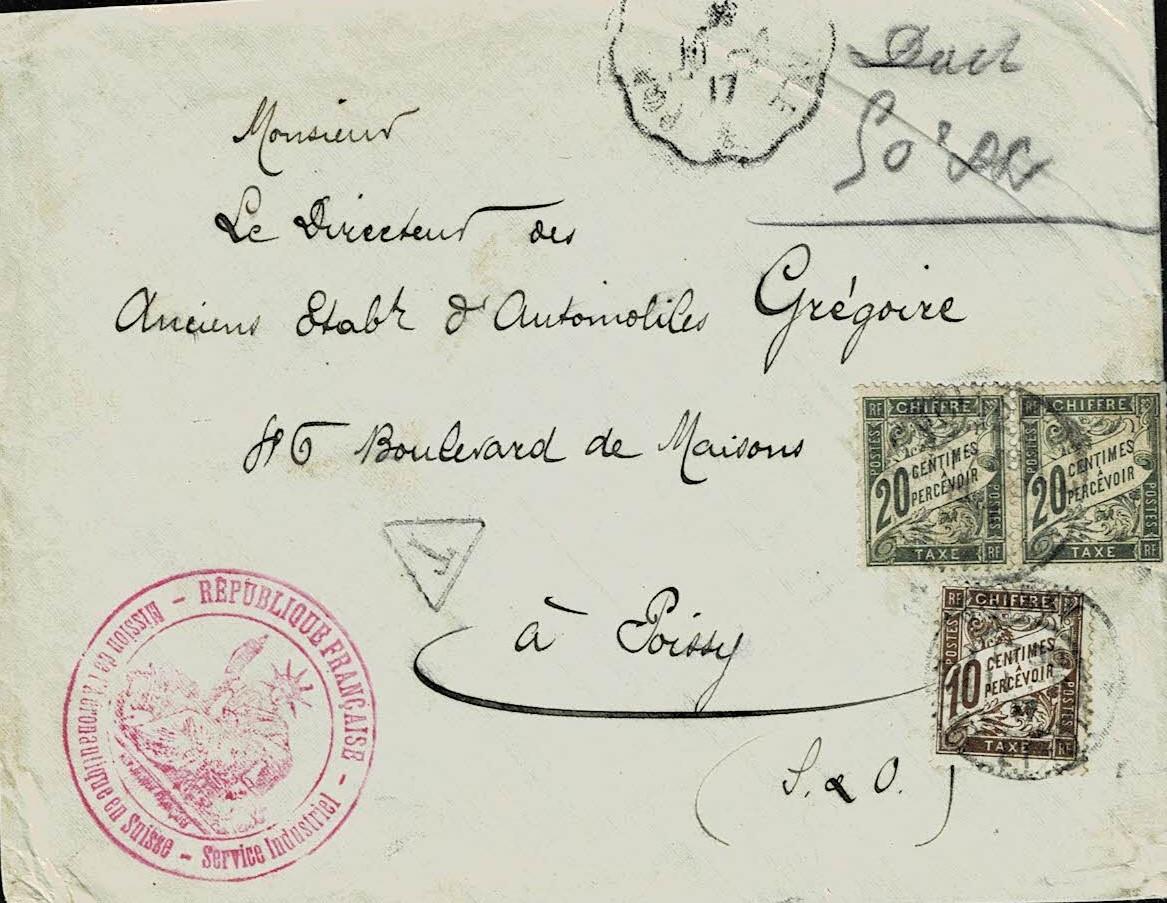 10
17
Monsieur
Le Directeur des
Anciens Etabts d'Automobiles Grégoire
Boulevard de Maisons
à Poissy
(S. & O.)
T
RF CHIFFRE
POSTES
20 CENTIMES
À
PERCEVOIR
POSTES
TAXE RF
RF CHIFFRE
POSTES
20 CENTIMES
À
PERCEVOIR
POSTES
TAXE RF
RF CHIFFRE
POSTES
10 CENTIMES
À
PERCEVOIR
POSTES
TAXE RF
RÉPUBLIQUE FRANÇAISE - Service Industriel - Mission de l'Aéronautique en Suisse -